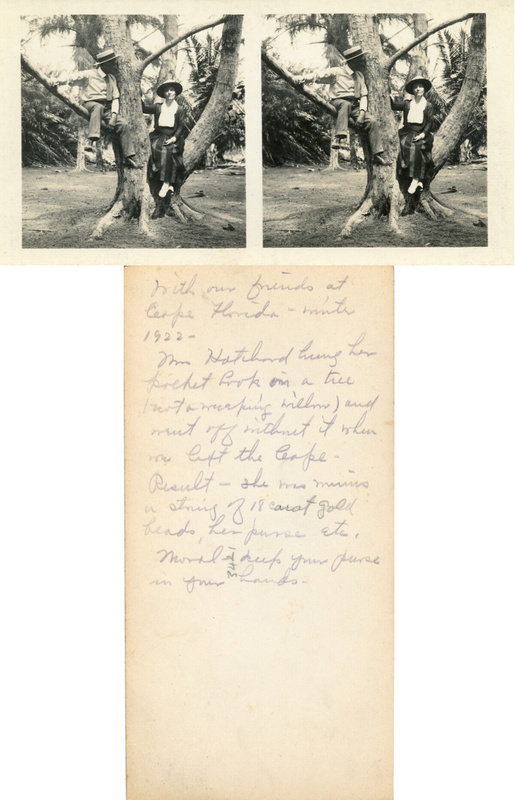 With our friends at
Cape Florida - winter
1922-
Mrs Hotchord hung her
pocket book on a tree
(not a weeping willow) and
went off without it when
we left the Cape -
Result - she was minus
a string of 18 carat gold
beads, her purse etc.
Moral - keep your purse
in your hands -